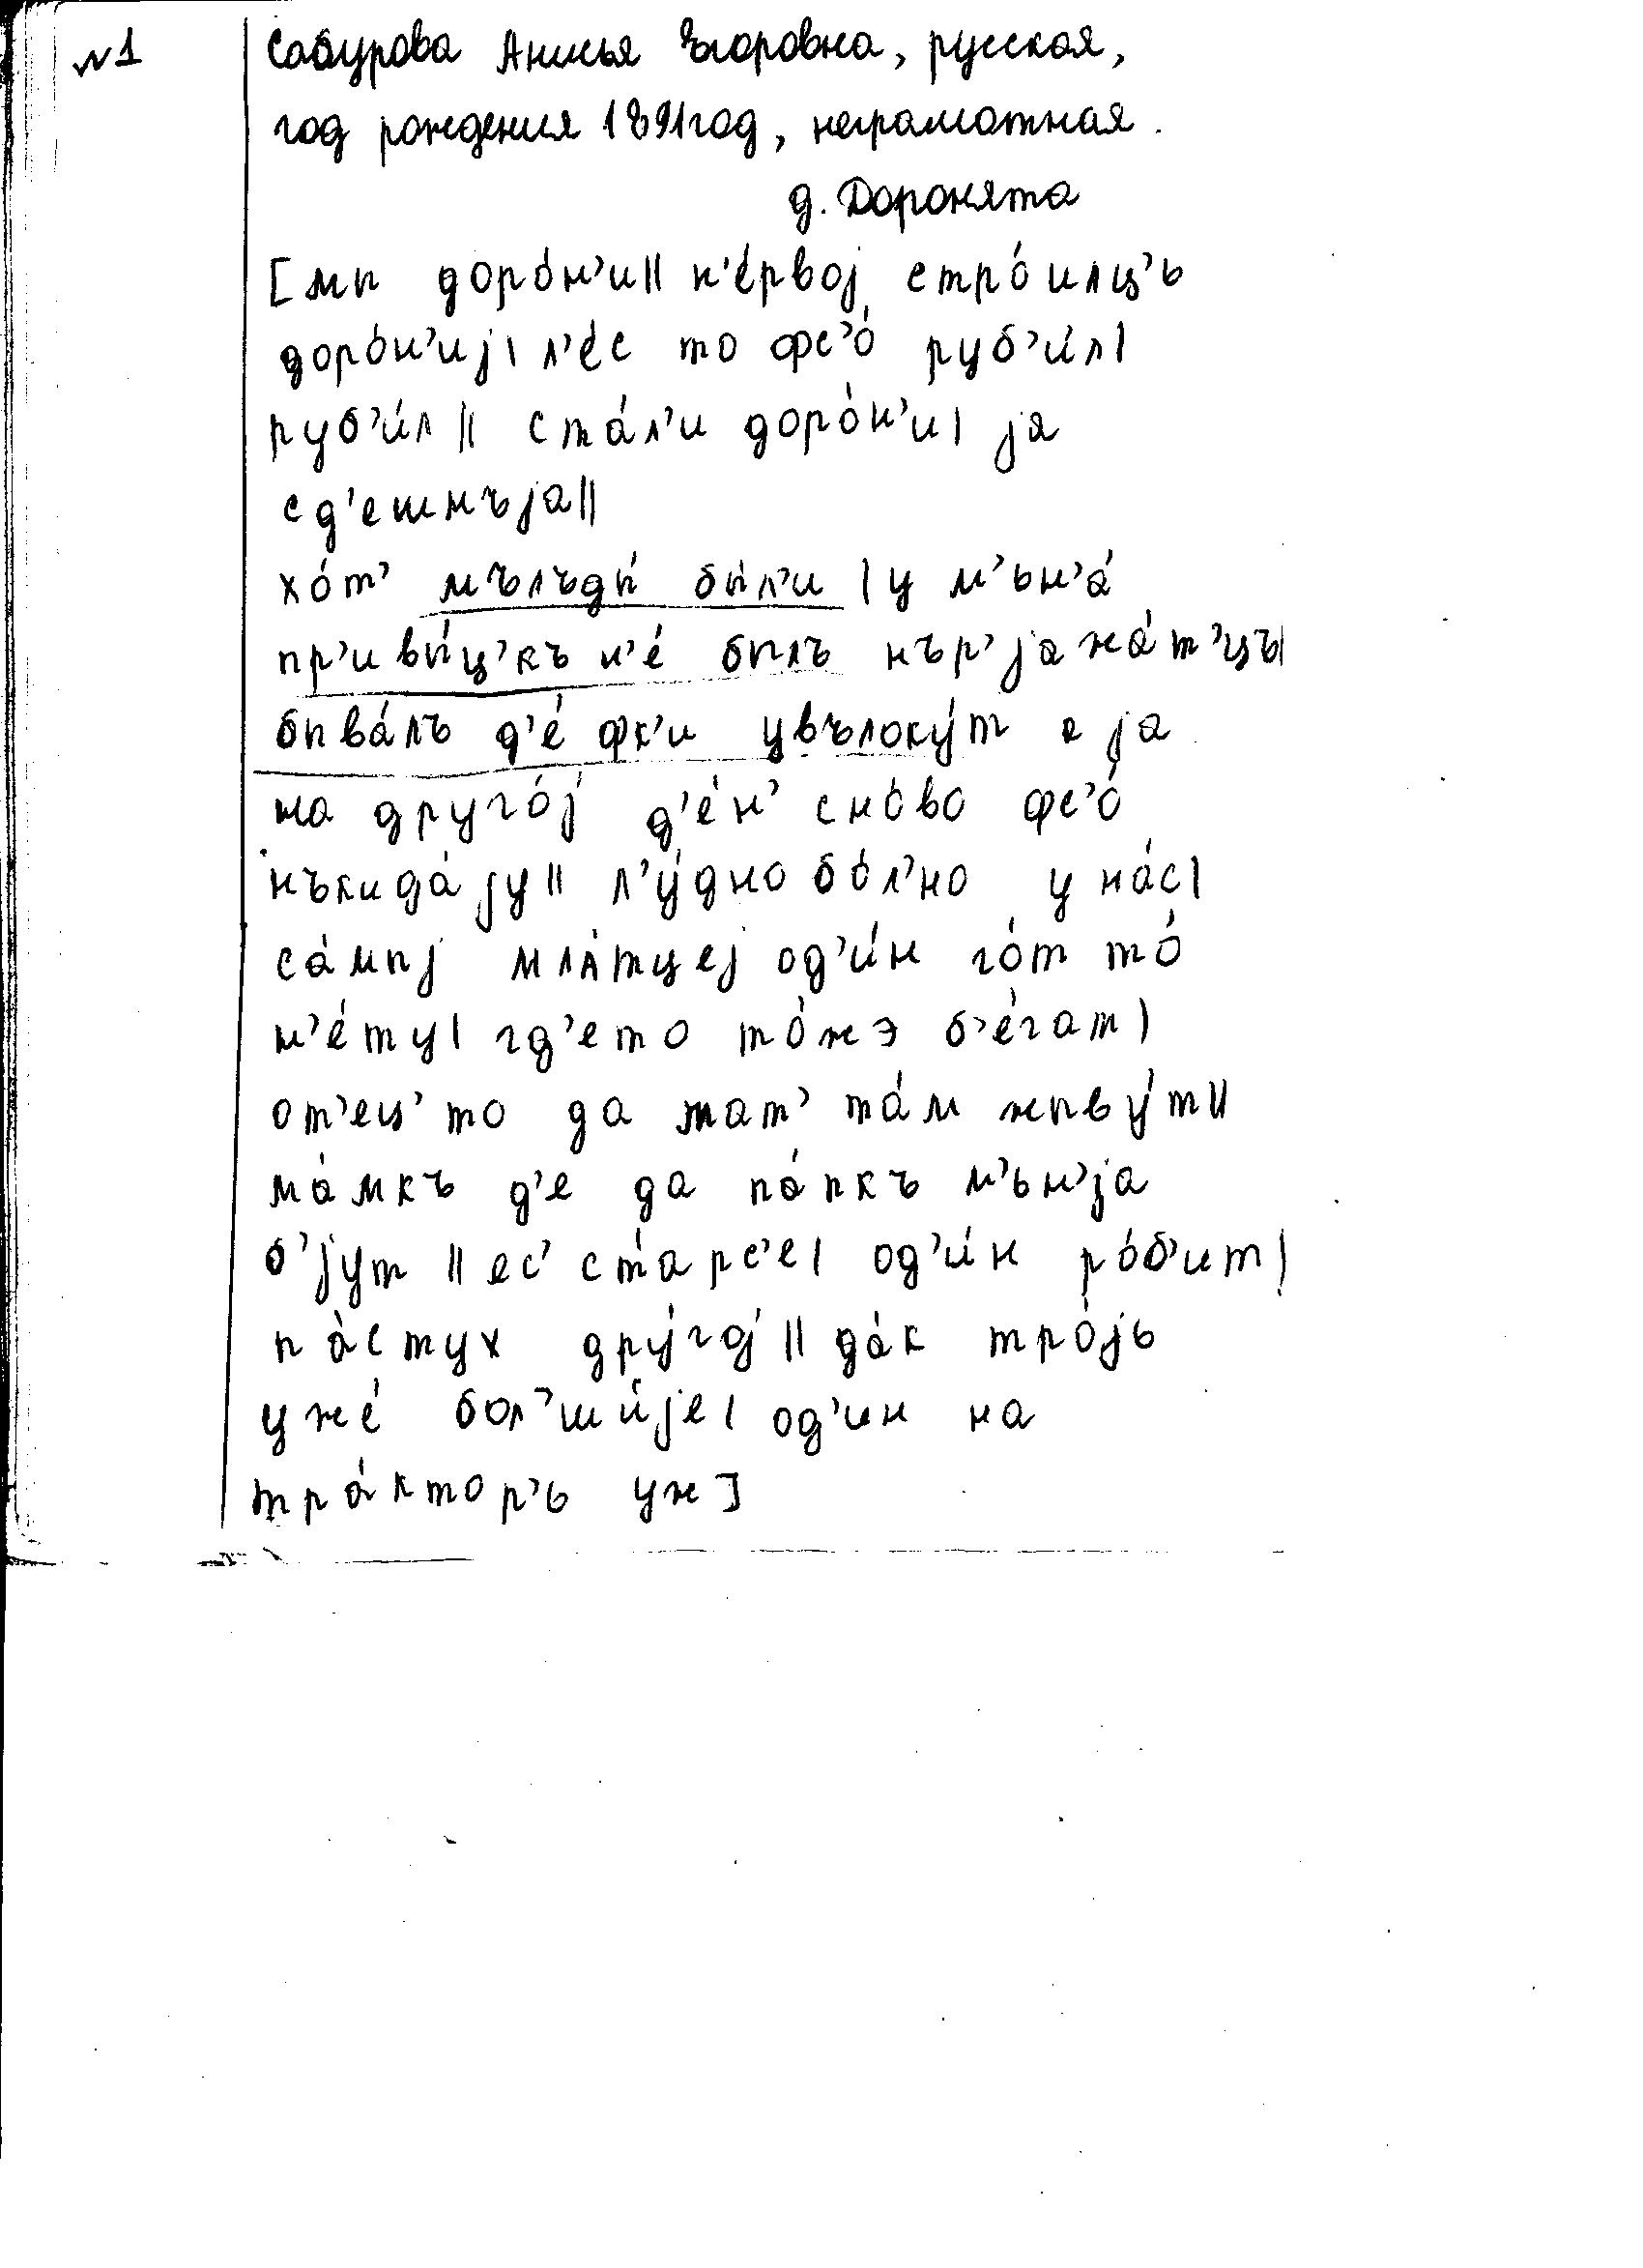 №1
Сабурова Анисья Егоровна, русская,
год рождения 1891год, неграмотная.
д. Доронята
[мы доро́н'и|| п'е́рвоj стро́илц'ь
доро́н'иj| л'е́с то фс'о́ руб'и́л|
руб'и́л|| ста́л'и доро́н'и| jа
сд'ешнъjа||
хо́т' мълъды́ бы́л'и | у м'ьн'а́
пр'ивы́ц'къ н'е́ былъ нър'jажа́т'цъ|
быва́лъ д'е́фк'и увълоку́т а jа
на друго́j д'е́н' сно́во фс'о́
нъкида́jу|| л'у́дно бо́л'но у на́с|
са́мыj мла́тцеj од'и́н го́т то́
н'е́ту| гд'ето то́жэ б'е́гат|
от'ец' то да мат' та́м жыву́т||
ма́мкъ д'е да па́пкъ м'ьн'jа
б'jут || ес' ста́рс'е| од'и́н ро́б'ит|
па́стух дру́гоj || да́к тро́jь
уже́ бол'шы́jе| од'ин на
тра́ктор'ь уж]